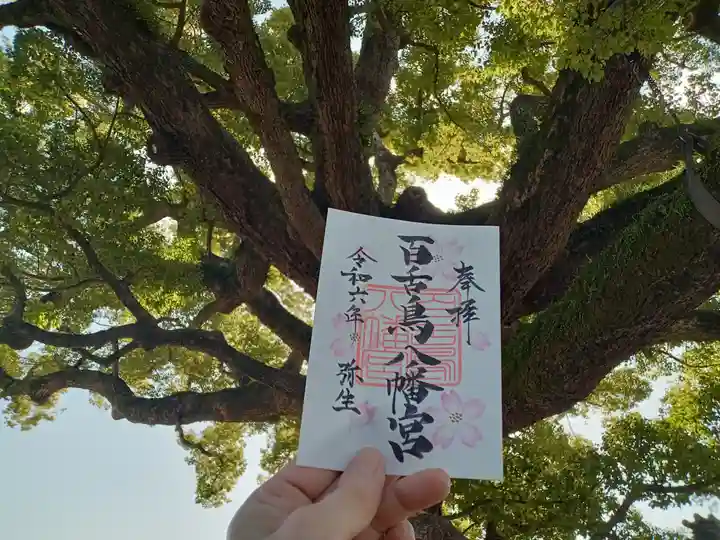 奉拝
百舌鳥八幡宮
令和六年 弥生